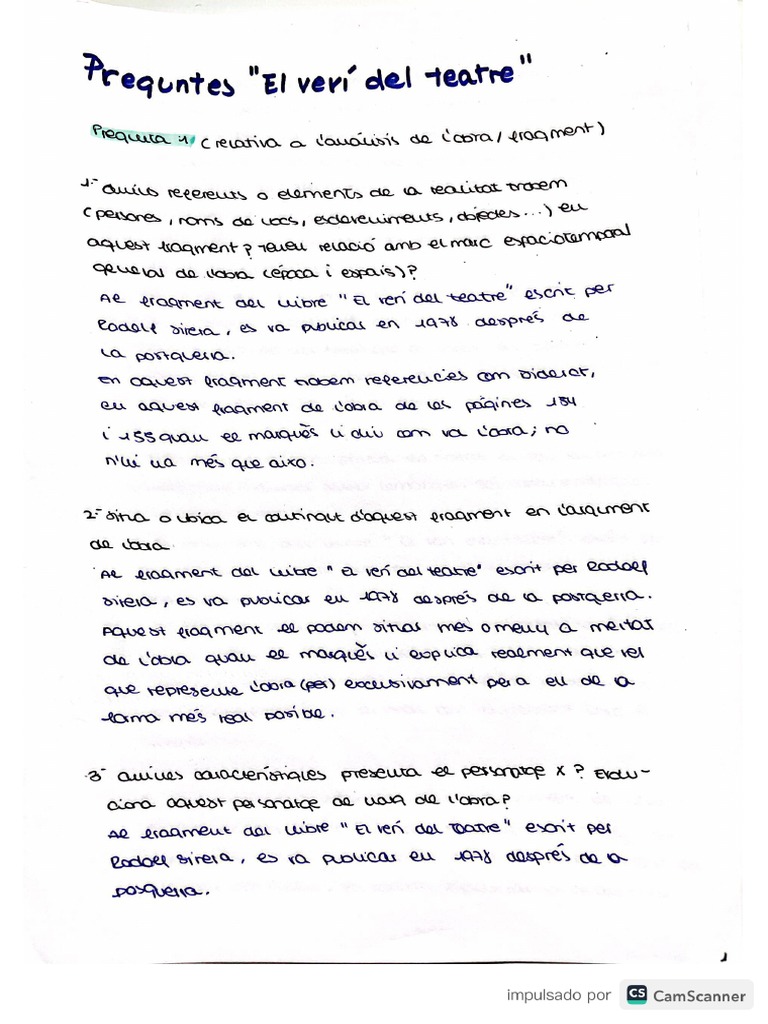 Preguntes "El verí del teatre"
Pregunta 1 (relativa a l'anàlisis de l'obra/fragment)
1- Quins referents o elements de la realitat trobem
(persones, noms de llocs, esdeveniments, objectes...) en
aquest fragment? Teneu relació amb el marc espaciotemporal
general de l'obra (época i espais)?
Al fragment del llibre "El verí del teatre" escrit per
Rodolf Sirera, es va publicar en 1978 després de
la postguerra.
En aquest fragment trobem referencies com Diderot,
en aquest fragment de l'obra de les págines 154
i 155 quan el marquès li diu com va l'obra; no
n'hi ha més que aixo.
2- Situa o ubica el contingut d'aquest fragment en l'argument
de l'obra.
Al fragment del llibre "El verí del teatre" escrit per Rodolf
Sirera, es va publicar en 1978 després de la postguerra.
Aquest fragment el podem situar mes o meny a meitat
de l'obra quan el marquès li explica realment que vol
que represente l'obra (per) exclusivament per a ell de la
forma més real posible.
3- Quines característiques presenta el personatge x? Evolu-
ciona aquest personatge al llarg de l'obra?
Al fragment del llibre "El verí del teatre" escrit per
Rodolf Sirera, es va publicar en 1978 després de la
posguerra.
impulsado por CS CamScanner